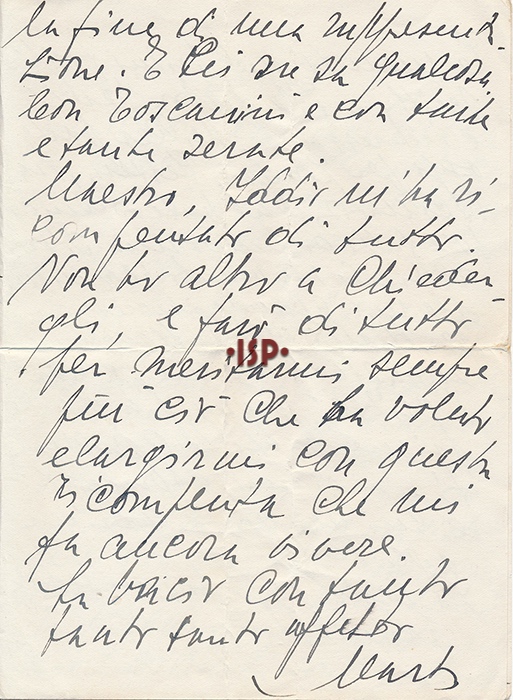 la fine di una rappresenta-
zione. E Lei ne sa qualcosa
con Toscanini e con tante
e tante serate.
Maestro, Iddio m'ha ri-
compensato di tutto.
Non ho altro a chieder-
gli, e farò di tutto
·ISP·
per meritarmi sempre
più ciò che ha voluto
elargirmi con questa
ricompensa che mi
fa ancora vivere.
La bacio con tanto
tanto tanto affetto